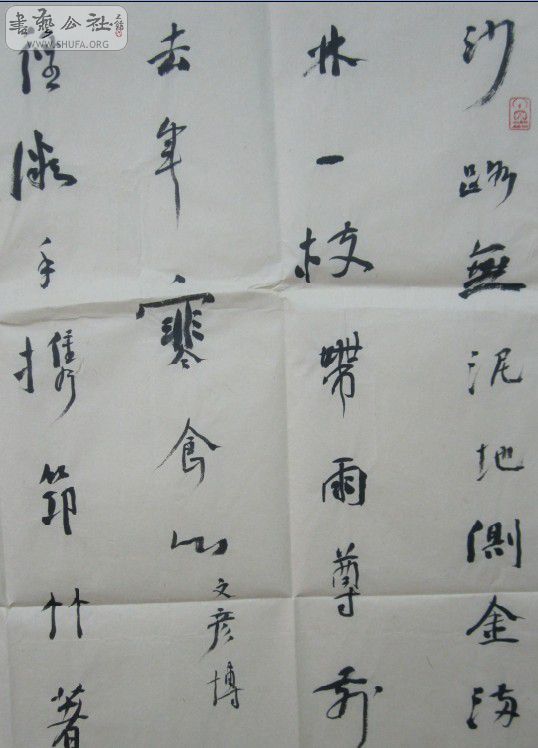 書藝公社
WWW.SHUFA.ORG
沙路無泥地側金海
林一枝帶雨尊前
去年寒食心
文彦博
徑微手攜筇竹著